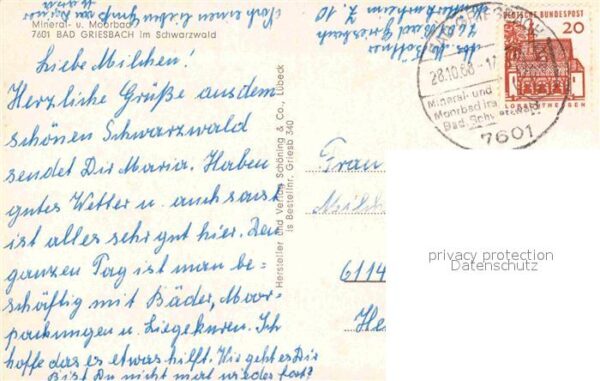 Mineral- u. Moorbad
7601 BAD GRIESBACH im Schwarzwald
Noch einen lieben
Gruß
Liebe Milchen!
Herzliche Grüße aus dem
schönen Schwarzwald
sendet Dir Maria. Haben
gutes Wetter u. auch sonst
ist alles sehr gut hier. Den
ganzen Tag ist man be-
schäftig mit Bäder, Moor-
packungen u. Liegekuren. Ich
hoffe das es etwas hilft. Wie geht es Dir
Bist Du nicht mal wieder fort?
Hersteller und Verlag Schöning & Co., Lübeck
is Bestellnr. Griesb 340
7601 Bad Griesbach
28.10.68-17
Mineral-und
Moorbad im
Bad. Schwarzwald
7601
DEUTSCHE BUNDESPOST
20
LORSCH HESSEN
Frau
6114
privacy protection
Datenschutz